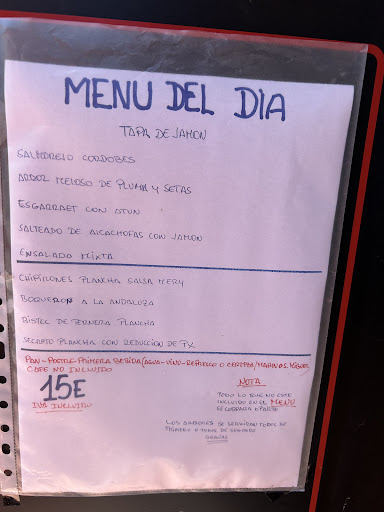 MENU DEL DIA
TAPA DE JAMON
SALMOREJO CORDOBES
ARROZ MELOSO DE PLUMA Y SETAS
ESGARRAET CON ATUN
SALTEADO DE ALCACHOFAS CON JAMON
ENSALADA MIXTA
CHIPIRONES PLANCHA SALSA MERY
BOQUERON A LA ANDALUZA
BISTEL DE TERNERA PLANCHA
SECRETO PLANCHA CON REDUCCION DE P.X
PAN-POSTRE-PRIMERA BEBIDA (AGUA-VINO-REFRESCO O CERVEZA/MAHOU
CAFE NO INCLUIDO
15E
IVA INCLUIDO
NOTA
TODO LO QUE NO ESTE
INCLUIDO EN EL MENU
SE COBRARA APARTE
LOS SERVIRAN TODOS DE
PRIMERO O TODOS DE SEGUNDO
GRACIAS